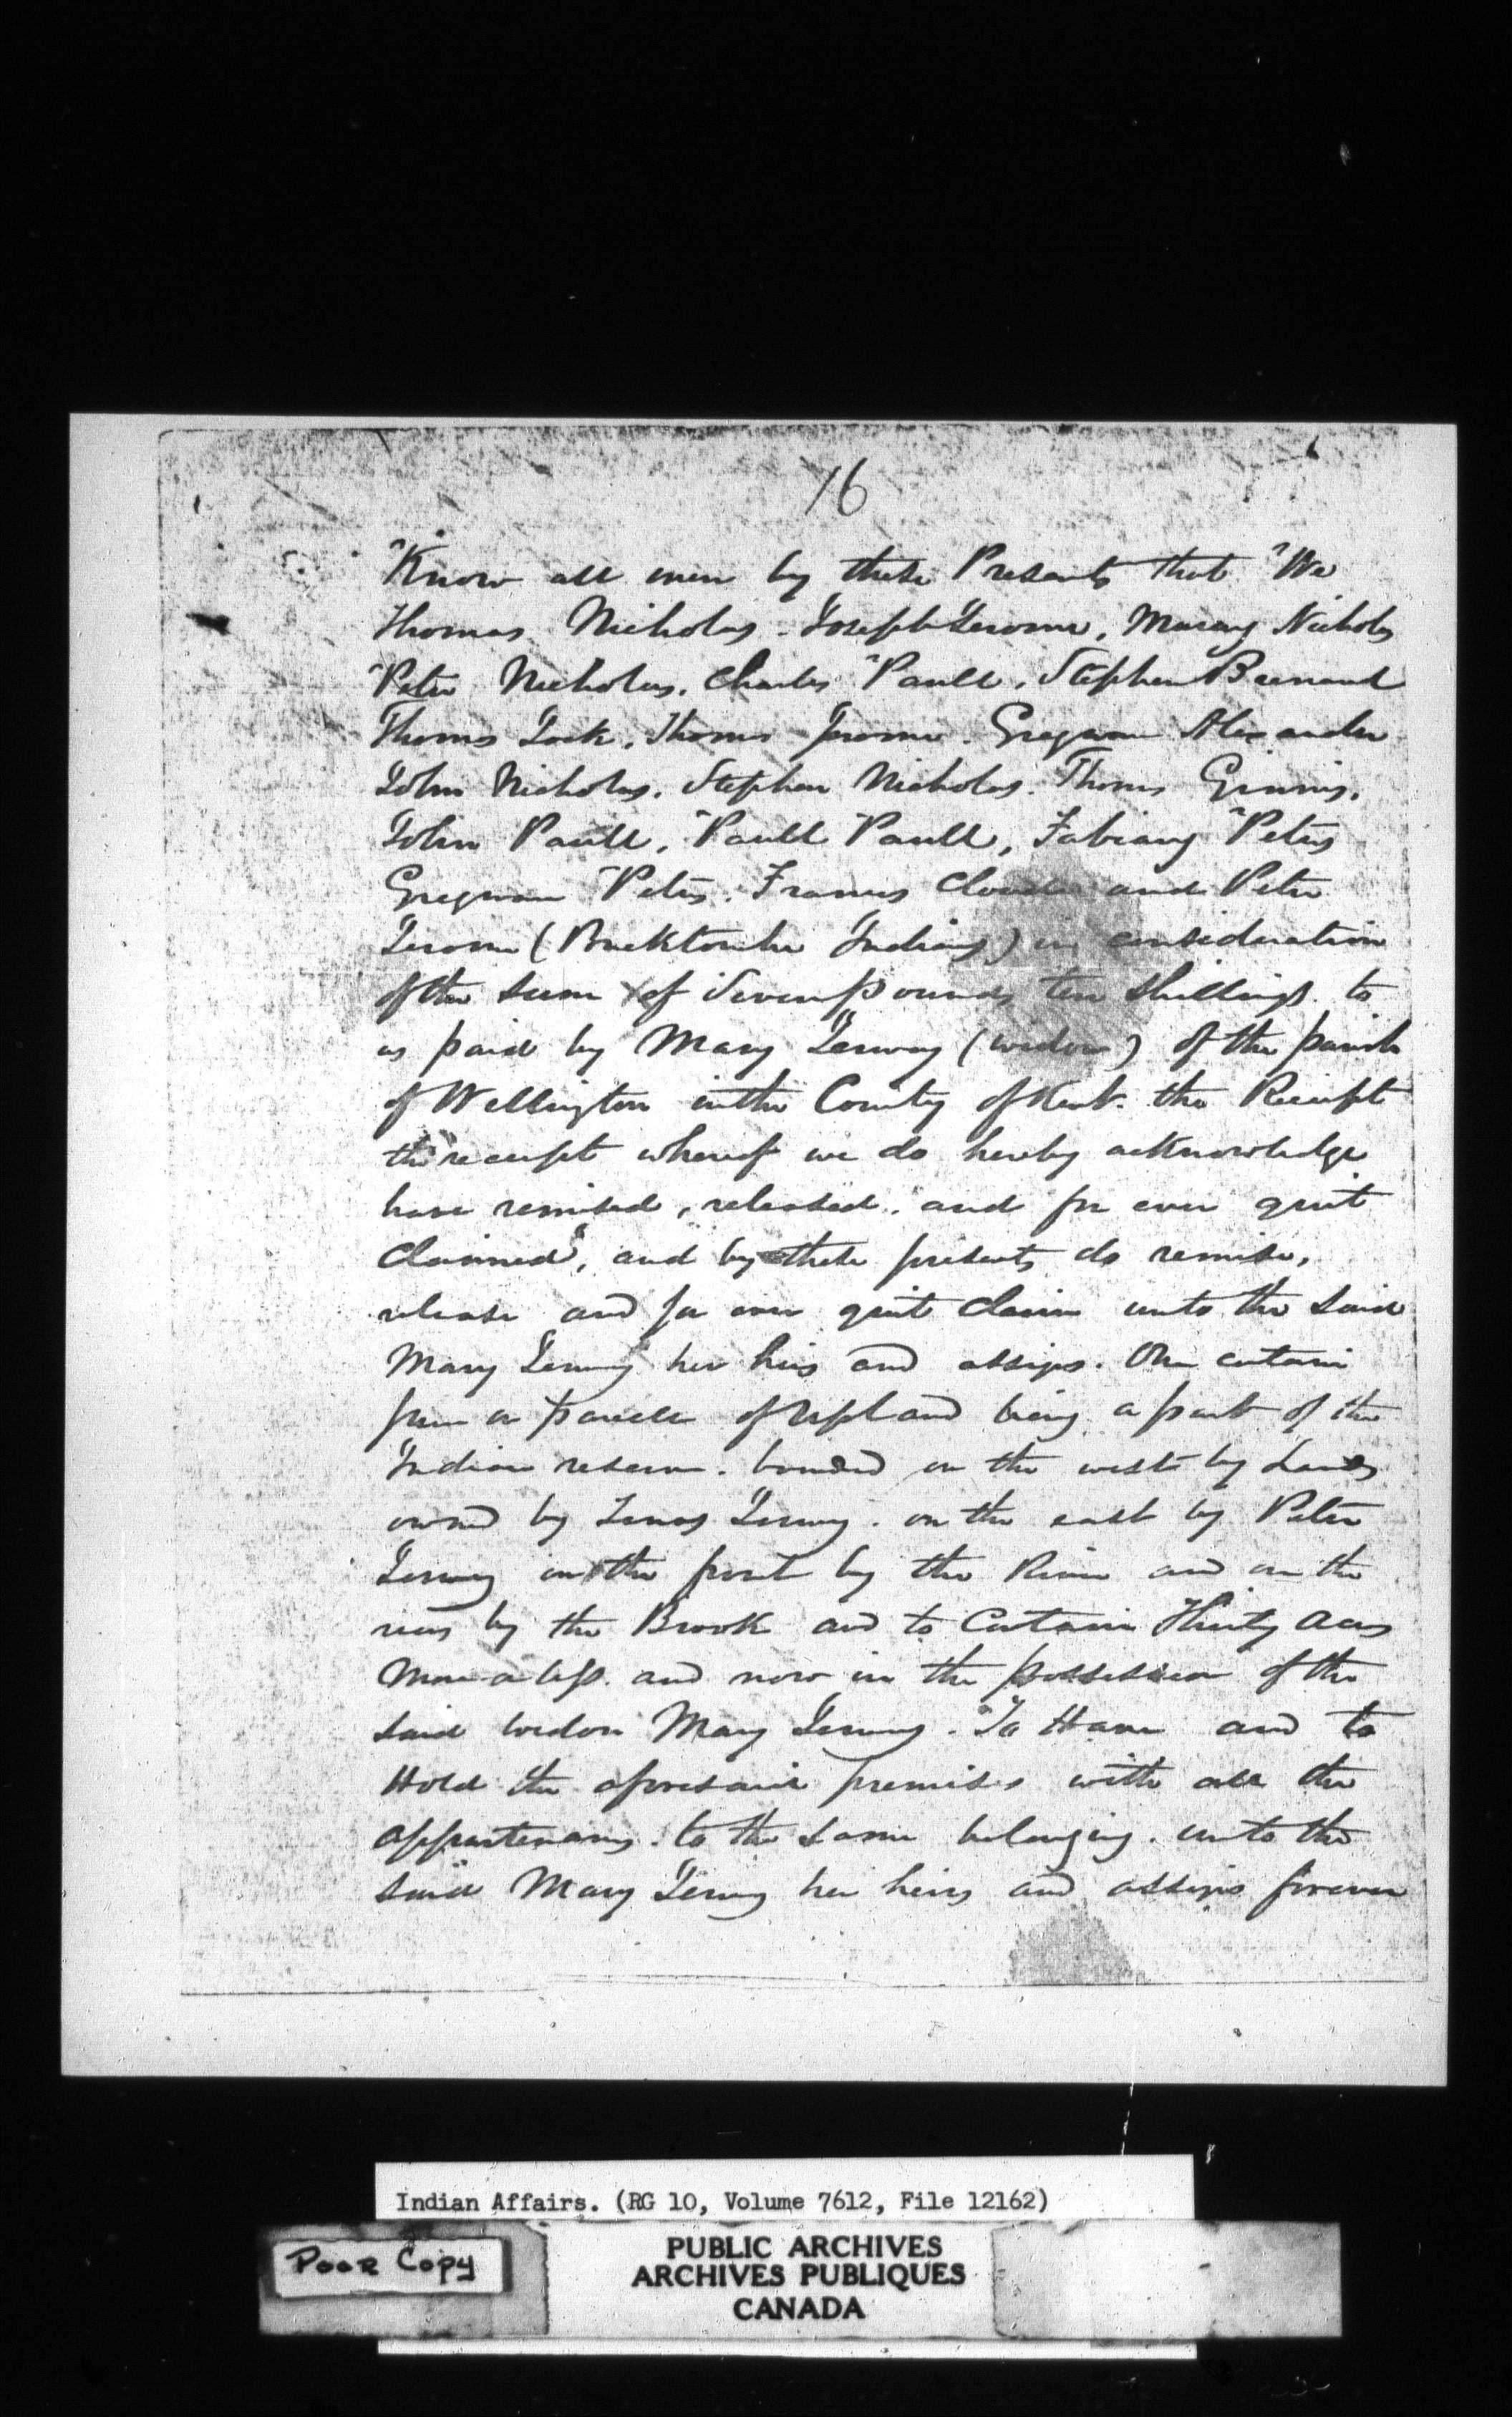 16
Know all men by these Presents that We
Thomas Nicholas. Joseph Jerome, Nicholas
Peter Nicholas. Charles Paull. Stephen Bernard
Thomas Jerome. Alexander
John Nicholas. Stephen Nicholas. Thomas
John Paull, Paull Paull, Peters
Peters. Francis and Peter
Jerome (Bucktouche Indians) in consideration
of the sum of Seven pounds ten Shillings to
us paid by Mary (widow) of the parish
of Wellington in the County of Kent. the Receipt
the receipt whereof we do hereby acknowledge
have remised, released, and for ever quit
claimed, and by these presents do remise,
release and for ever quit claim unto the said
Mary her heirs and assigns. One certain
piece or parcell of Upland being a part of the
Indian reserve. bounded on the west by Lands
owned by on the east by Peter
in the front by the River and on the
rear by the Brook and to Contain Thirty acres
more or less. and now in the possession of the
said widow Mary To Have and to
Hold the aforesaid premises with all the
to the same belonging. unto the
said Mary her heirs and assigns forever
Indian Affairs. (RG 10, Volume 7612, File 12162)
POOR COPY
PUBLIC ARCHIVES
ARCHIVES PUBLIQUES
CANADA